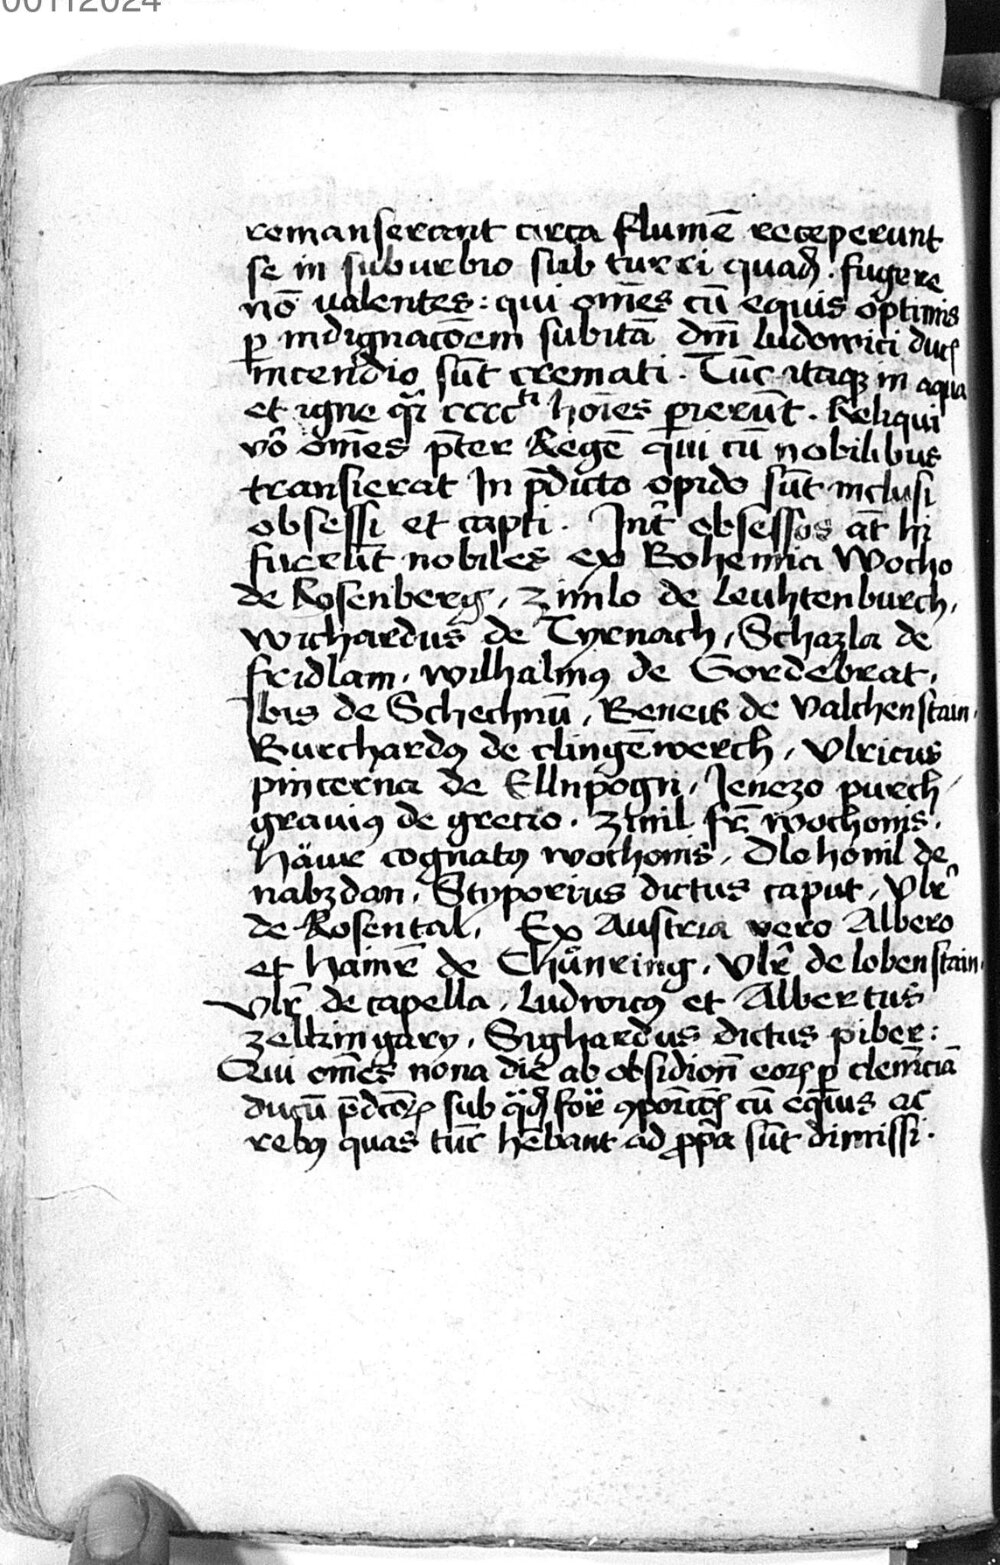 00112024
remanserant circa flumē receperunt
se in suburbio sub turri quad̄. fugere
nō ualentes: qui om̄es cū equis optimis
ꝑ indignacōem subitā dn̄i ludowici duc̄
incendio sūt cremati. Tūc itaqꝫ in aqua
et igne qͣi cccc ho͞ies ꝑierūt. Reliqui
vo᷑ om̄es p̄ter Regē qui cū nobilibus
transierāt In p̄dicto opido sūt inclusi
obsessi et capti. Int͛ obsessos at̄ hij
fuerūt nobiles ex Bohemia Wocho
de Rosenberg, zimlo de leuhtenburch,
wichardus de Tyrnach, Schazla de
fridlam, wilhalmꝯ de Gordebrat,
Ibis de Schechnū, Beneis de valchenstain,
Burchardꝯ de clingēwerch, vlricus
pincerna de Ellnpogn, Jenezo purch
grauiꝯ de gretio. zimil fr̄ wochonis,
häwe cognatꝯ wochonis, Olohomil de
nabzdan, Styporius dictus caput, vlr̄
de Rosental, Ex Austria vero Albero
et hainr̄ de Chuͤnring, vlr̄ de lobenstain,
vlr̄ de capella, ludwicꝯ et Albertus
zelkingary, Sighardus dictus piber:
Qui om̄es nona die ab obsidion̄ eoꝝ ꝑ clem̄ciā
ducū p̄dc̄oꝝ sub cū eqͥus ac
rebꝯ quas tūc hēbant ad ꝓp̄a sūt dimissi.